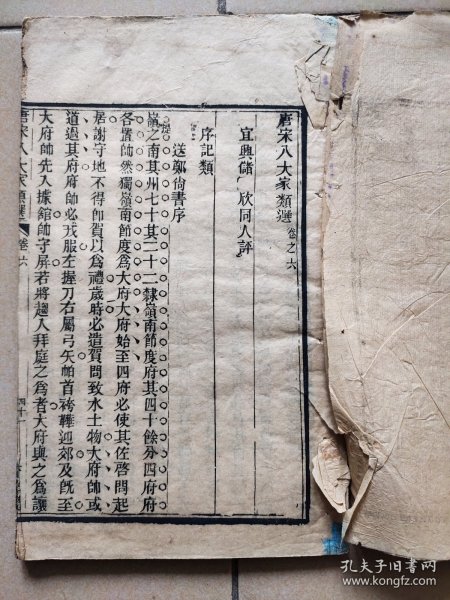 唐宋八大家類選 卷之六
宜興儲 欣同人評
序記類
送鄭尚書序
嶺之南其州七十其二十二隸嶺南節度府其四十餘分四府府
各置帥然獨嶺南節度為大府大府始至四府必使其佐啓問起
居謝守地不得即賀以為禮歲時必遣賀問致水土物大府帥或
道過其府府帥必戎服左握刀右屬弓矢帕首袴鞾迎郊及旣至
大府帥先入據館帥守屏若將趨入拜庭之為者大府與之為讓
唐宋八大家類選 卷六
四十一
孔夫子旧书网
www.kongfz.com